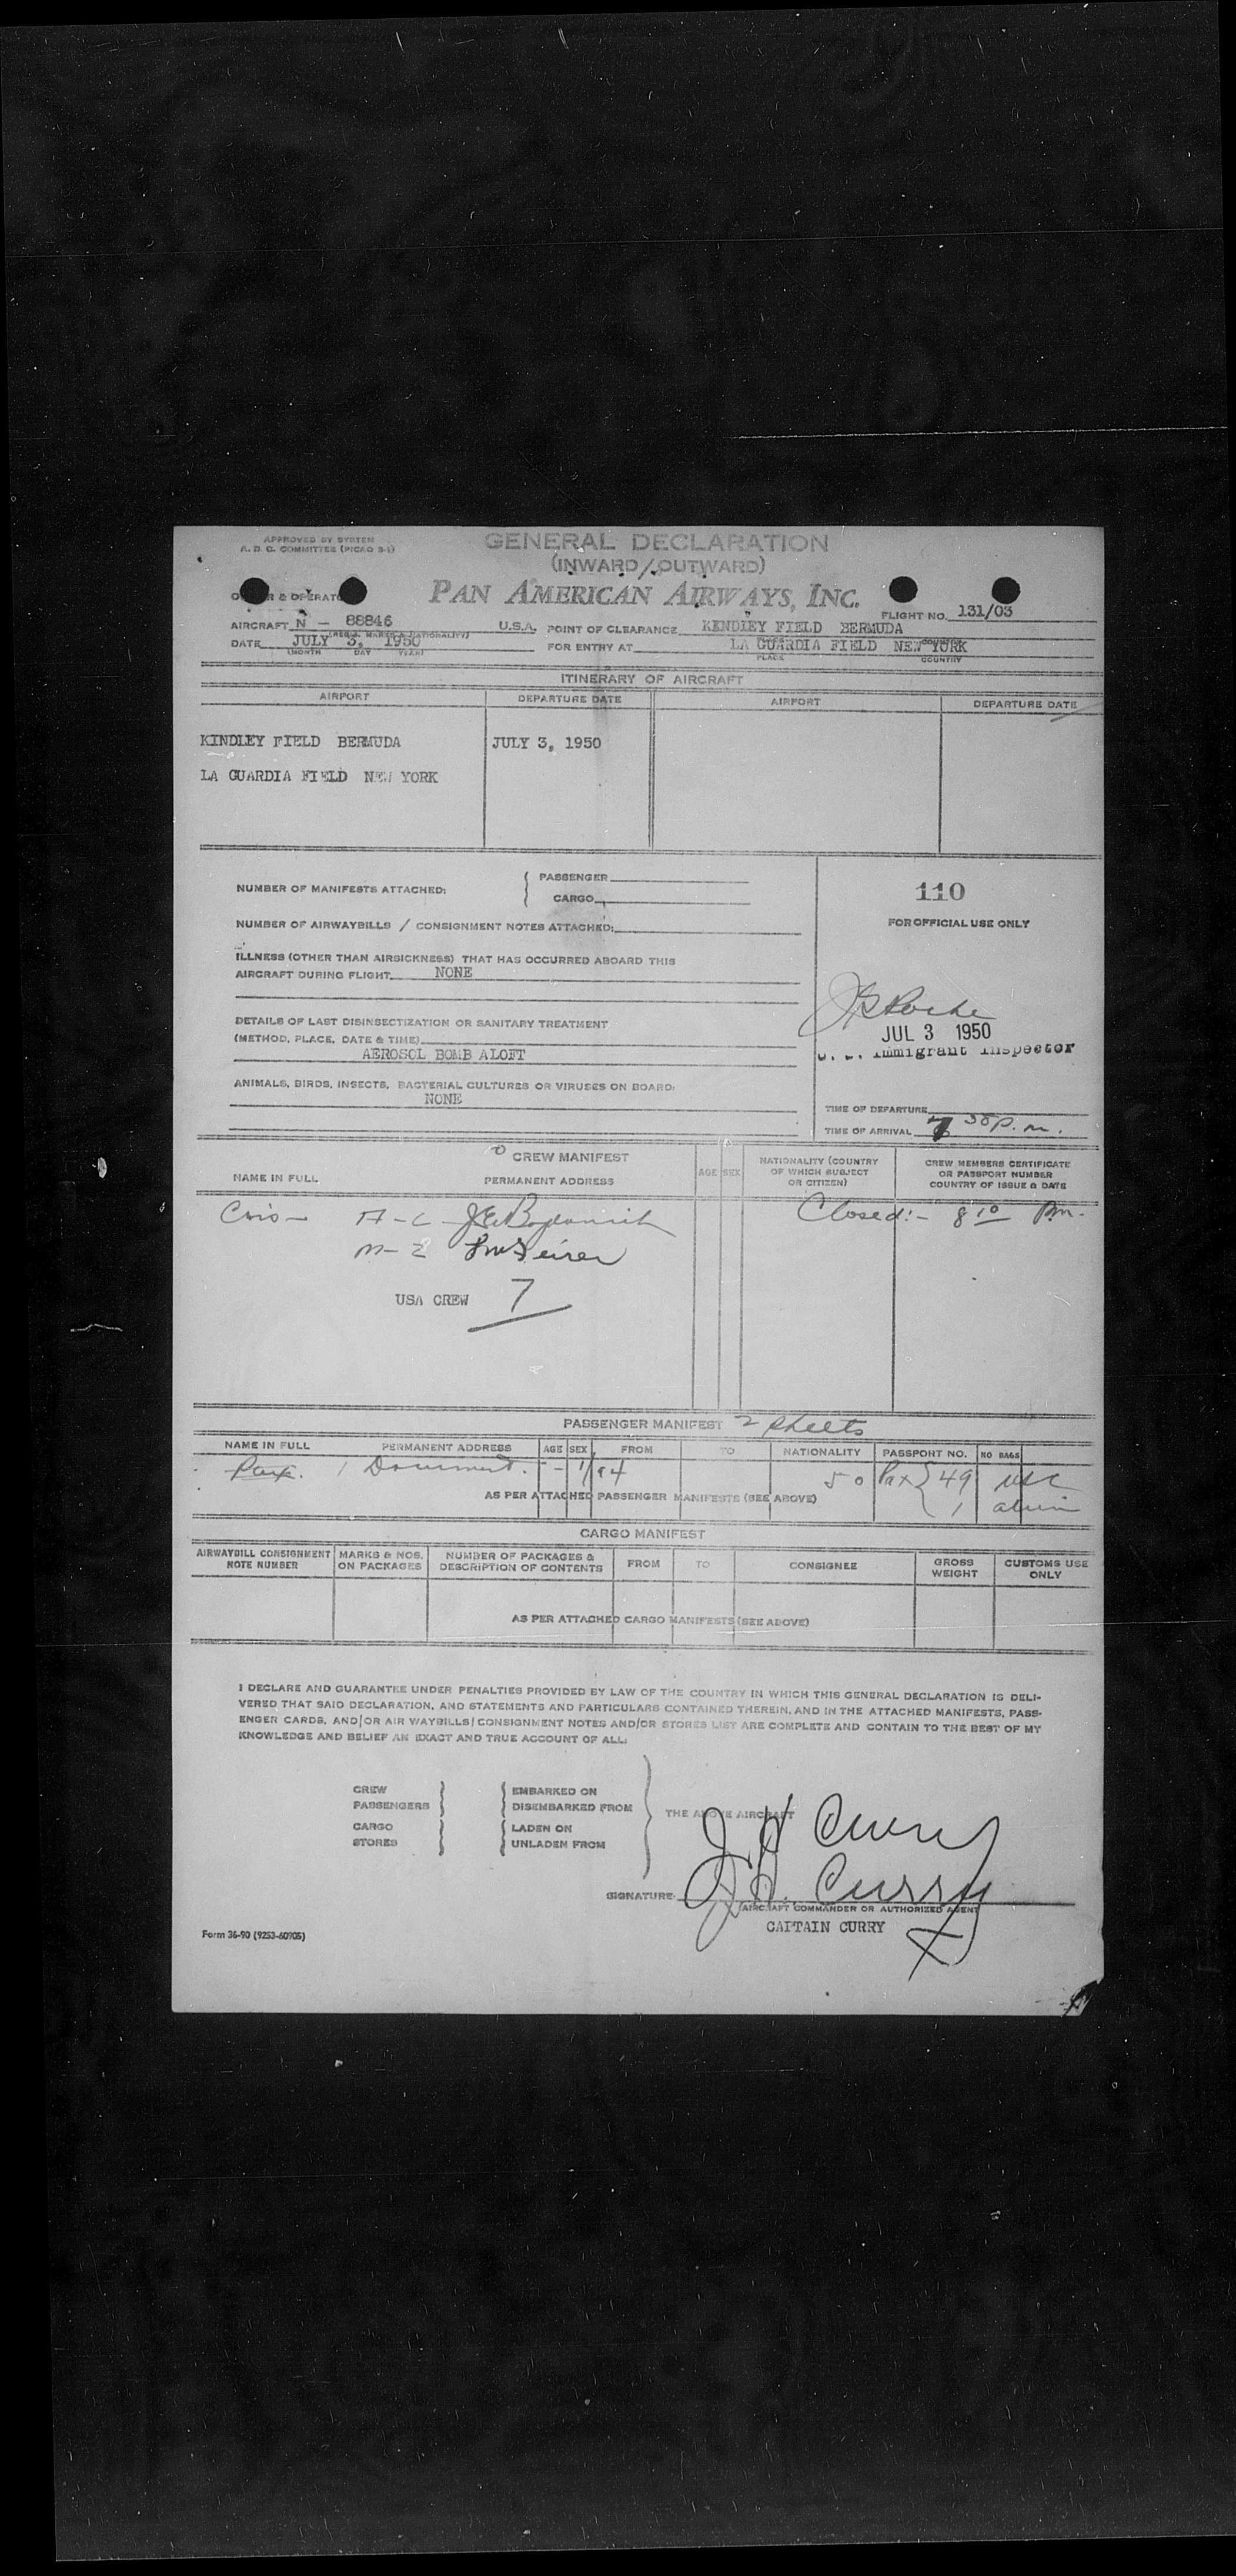 APPROVED BY SYSTEM
A. D. C. COMMITTEE (PICAO 3-1)
GENERAL DECLARATION
(INWARD/OUTWARD)
& OPERATOR
PAN AMERICAN AIRWAYS, INC.
FLIGHT NO. 131/03
AIRCRAFT N - 88846 U.S.A. POINT OF CLEARANCE KINDLEY FIELD BERMUDA
DATE JULY 3, 1950 FOR ENTRY AT LA GUARDIA FIELD NEW YORK
(MONTH DAY YEAR) PLACE COUNTRY
ITINERARY OF AIRCRAFT
AIRPORT DEPARTURE DATE AIRPORT DEPARTURE DATE
KINDLEY FIELD BERMUDA JULY 3, 1950
LA GUARDIA FIELD NEW YORK
NUMBER OF MANIFESTS ATTACHED: PASSENGER
CARGO
110
FOR OFFICIAL USE ONLY
NUMBER OF AIRWAYBILLS / CONSIGNMENT NOTES ATTACHED:
ILLNESS (OTHER THAN AIRSICKNESS) THAT HAS OCCURRED ABOARD THIS
AIRCRAFT DURING FLIGHT NONE
DETAILS OF LAST DISINSECTIZATION OR SANITARY TREATMENT
(METHOD, PLACE, DATE & TIME)
AEROSOL BOMB ALOFT
JUL 3 1950
Immigrant Inspector
ANIMALS, BIRDS, INSECTS, BACTERIAL CULTURES OR VIRUSES ON BOARD:
NONE
TIME OF DEPARTURE
TIME OF ARRIVAL 30 P.m.
CREW MANIFEST
NAME IN FULL PERMANENT ADDRESS AGE SEX NATIONALITY (COUNTRY OF WHICH SUBJECT OR CITIZEN) CREW MEMBERS CERTIFICATE OR PASSPORT NUMBER COUNTRY OF ISSUE & DATE
Closed:- 8 10 Pm.
USA CREW 7
PASSENGER MANIFEST 2 sheets
NAME IN FULL PERMANENT ADDRESS AGE SEX FROM TO NATIONALITY PASSPORT NO. NO BAGS
Pax. 1 Document. 50 Pax 49 USC
AS PER ATTACHED PASSENGER MANIFESTS (SEE ABOVE) 1 alien
CARGO MANIFEST
AIRWAYBILL CONSIGNMENT NOTE NUMBER MARKS & NOS. ON PACKAGES NUMBER OF PACKAGES & DESCRIPTION OF CONTENTS FROM TO CONSIGNEE GROSS WEIGHT CUSTOMS USE ONLY
AS PER ATTACHED CARGO MANIFESTS (SEE ABOVE)
I DECLARE AND GUARANTEE UNDER PENALTIES PROVIDED BY LAW OF THE COUNTRY IN WHICH THIS GENERAL DECLARATION IS DELI-
VERED THAT SAID DECLARATION, AND STATEMENTS AND PARTICULARS CONTAINED THEREIN, AND IN THE ATTACHED MANIFESTS, PASS-
ENGER CARDS, AND/OR AIR WAYBILLS/CONSIGNMENT NOTES AND/OR STORES LIST ARE COMPLETE AND CONTAIN TO THE BEST OF MY
KNOWLEDGE AND BELIEF AN EXACT AND TRUE ACCOUNT OF ALL:
CREW EMBARKED ON
PASSENGERS DISEMBARKED FROM
THE ABOVE AIRCRAFT
CARGO LADEN ON
STORES UNLADEN FROM
J H Curry
SIGNATURE: J H. Curry
(AIRCRAFT COMMANDER OR AUTHORIZED AGENT)
CAPTAIN CURRY
Form 36-90 (9253-60905)